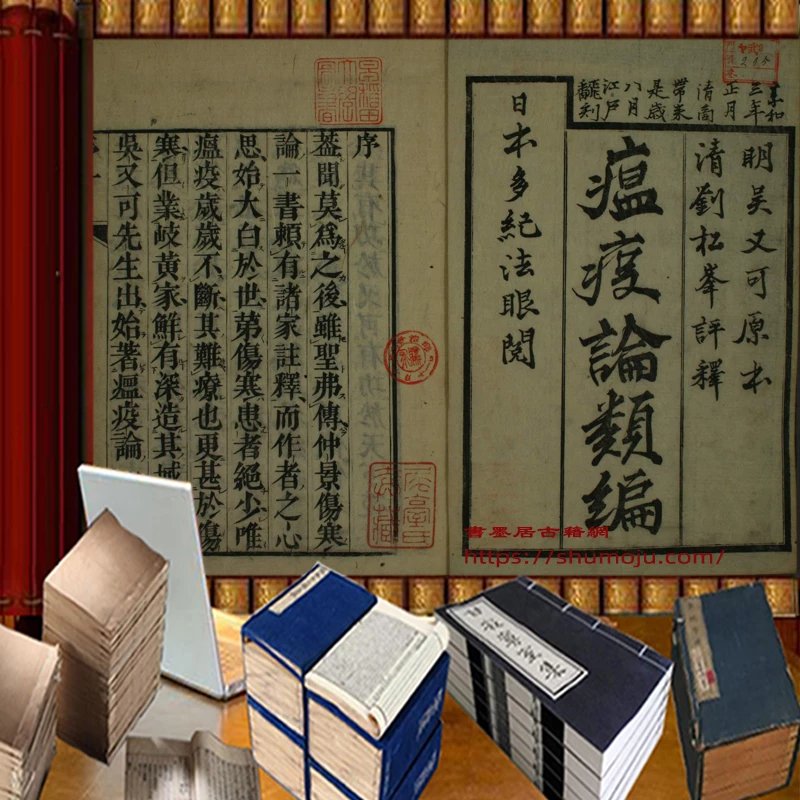 享和
三年
正月
清商
帶来
是歳
八月
江戸
翻刻
明吳又可原本
清劉松峯評釋
瘟疫論類編
日本多紀法眼閱
序
蓋聞莫爲之後雖聖弗傳仲景傷寒
論一書賴有諸家註釋而作者之心
思始大白於世第傷寒患者絕少唯
瘟疫歲歲不斷其難療也更甚於傷
寒但業岐黃家鮮有深造其域
吳又可先生出始著瘟疫論
書墨居古籍網
https://shumoju.com/